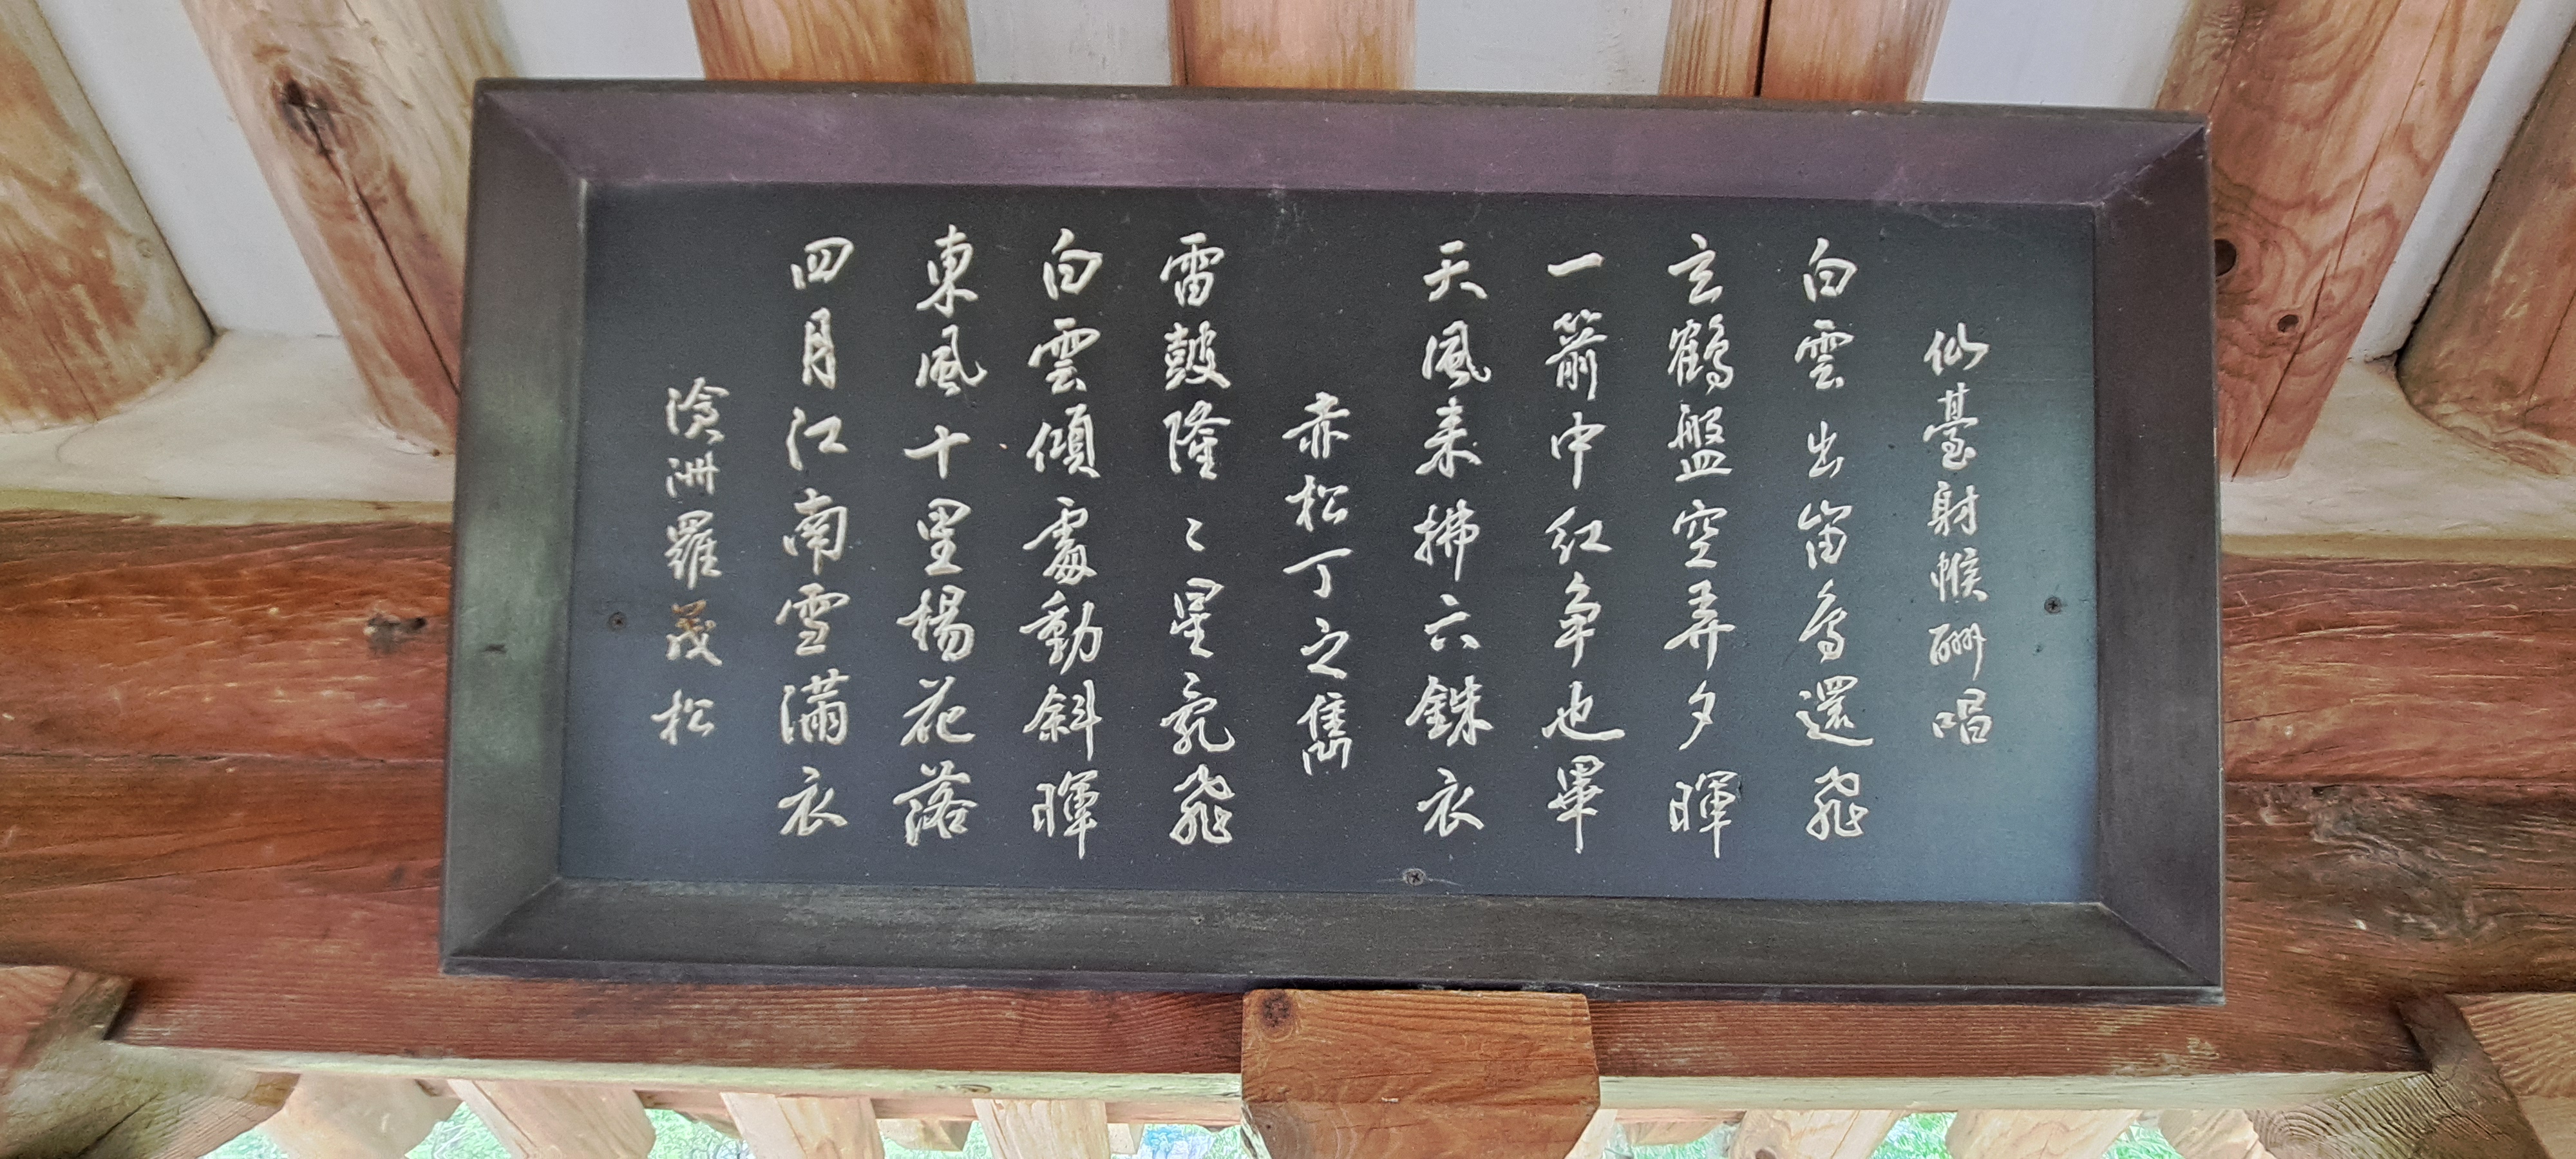 仙臺射帿酬唱
白雲出岫鳥還飛
玄鶴盤空弄夕暉
一箭中紅爭也畢
天風来拂六銖衣
赤松丁之雋
雷鼓隆〻星彘飛
白雲傾處動斜暉
東風十里楊花落
四月江南雪滿衣
滄洲羅茂松